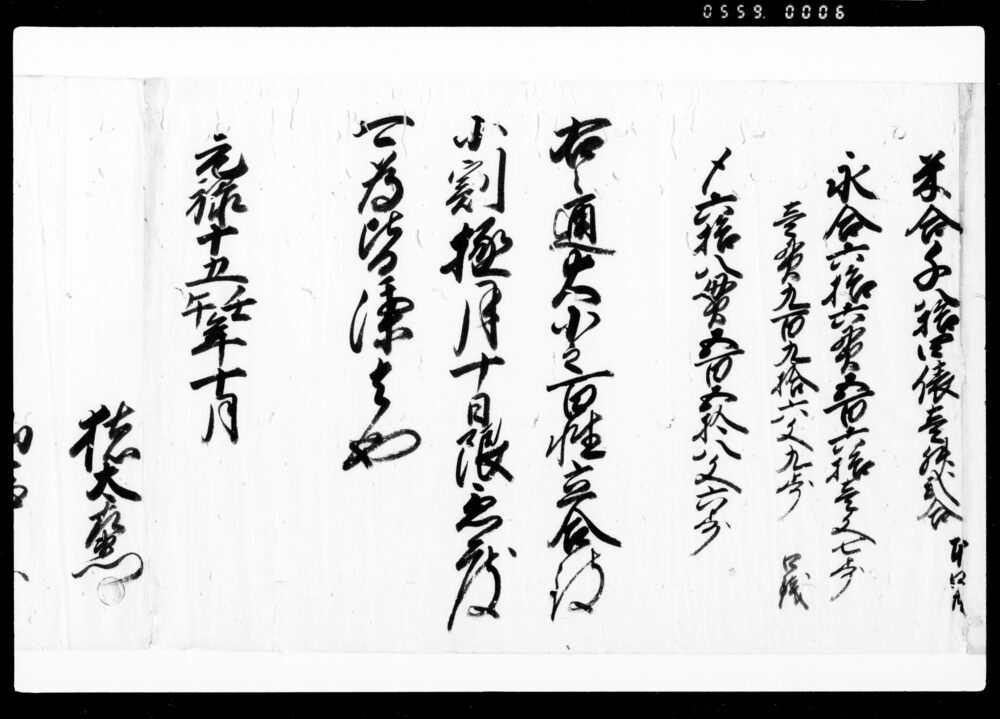 0559. 0006
米合千拾四俵壱升弐合
永合六拾六貫五百六拾壱文七歩
壱貫九百九拾六文九歩 口銭
〆六拾八貫五百五拾八文六分
右之通大小之百性立合致
小割極月十日限急度
可為皆済者也
元禄十五壬午年十月
太左衛門